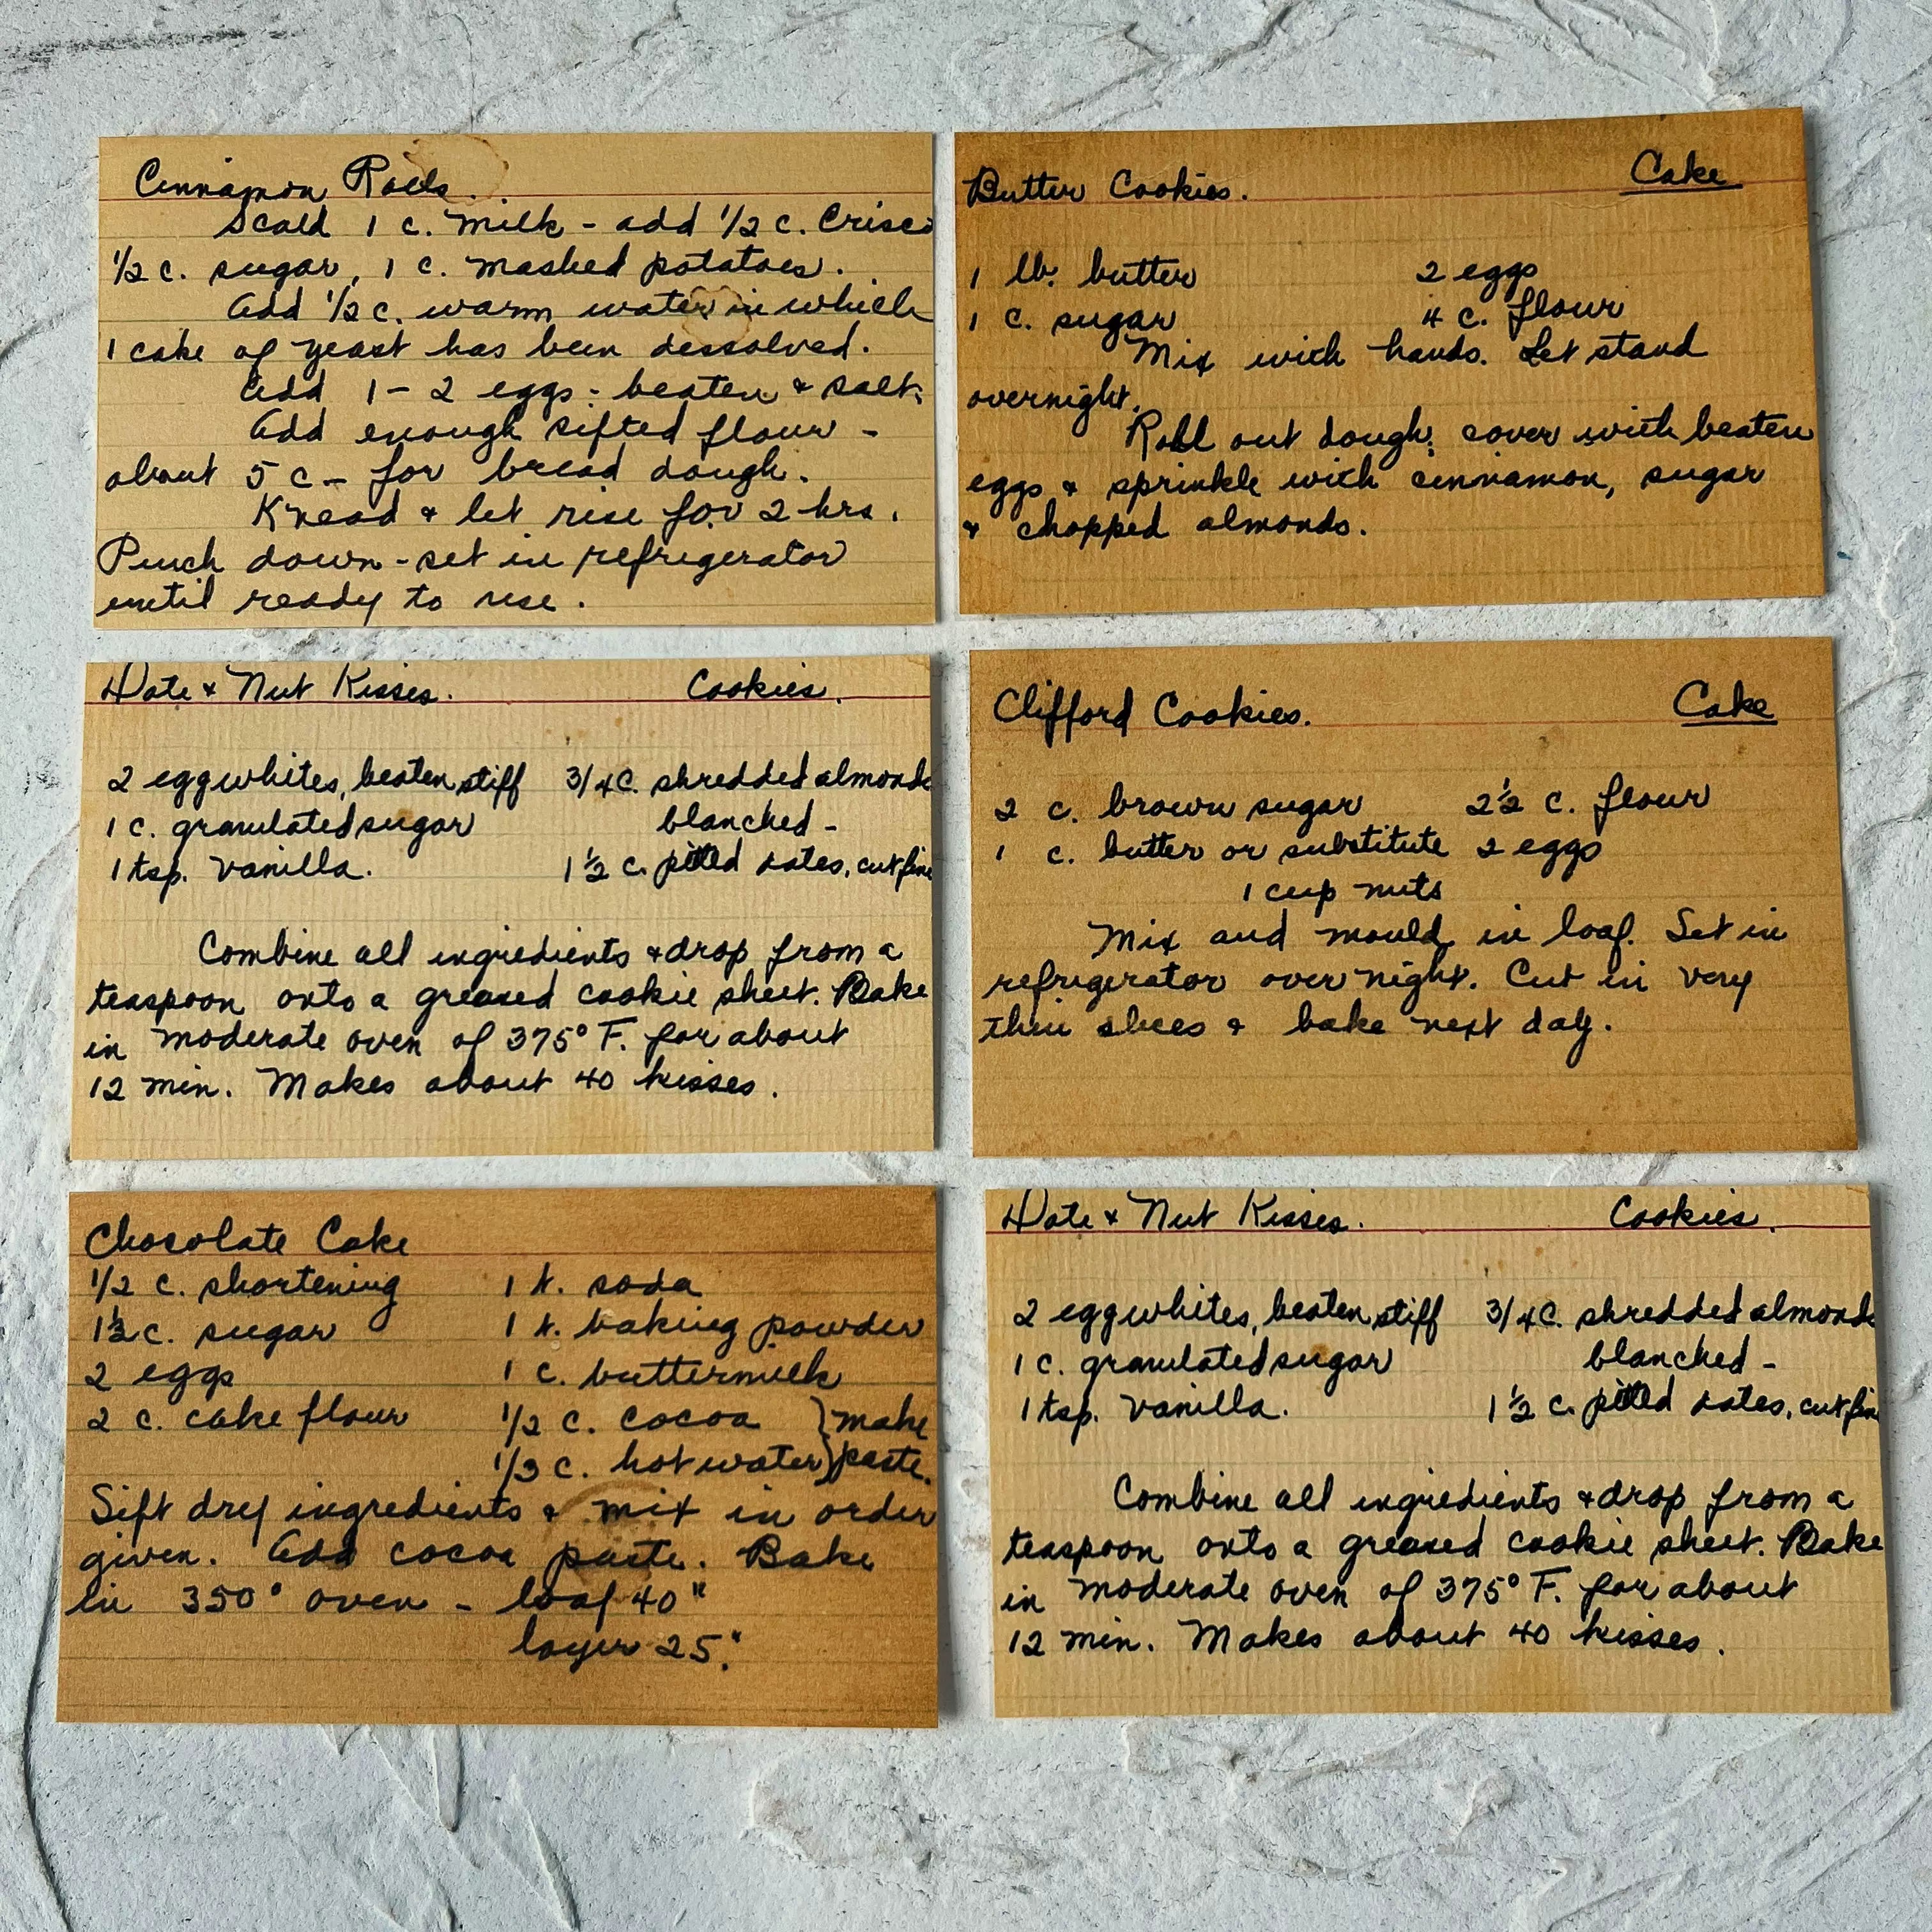 Cinnamon Rolls.
Scald 1 c. milk - add 1/2 c. Crisco
1/2 c. sugar, 1 c. mashed potatoes.
Add 1/2 c. warm water in which
1 cake of yeast has been dessolved.
Add 1-2 eggs - beaten & salt.
Add enough sifted flour -
about 5 c - for bread dough.
Knead & let rise for 2 hrs.
Punch down - set in refrigerator
until ready to use.
Butter Cookies. Cake
1 lb. butter 2 eggs
1 c. sugar 4 c. flour
Mix with hands. Let stand
overnight.
Roll out dough; cover with beaten
eggs & sprinkle with cinnamon, sugar
& chopped almonds.
Date & Nut Kisses. Cookies.
2 egg whites, beaten stiff 3/4 c. shredded almonds
1 c. granulated sugar blanched -
1 tsp. vanilla. 1 1/2 c. pitted dates, cut fine
Combine all ingredients & drop from a
teaspoon onto a greased cookie sheet. Bake
in moderate oven of 375° F. for about
12 min. Makes about 40 kisses.
Clifford Cookies. Cake
2 c. brown sugar 2 1/2 c. flour
1 c. butter or substitute 2 eggs
1 cup nuts
Mix and mould in loaf. Set in
refrigerator over night. Cut in very
thin slices & bake next day.
Chocolate Cake
1/2 c. shortening 1 t. soda
1 1/2 c. sugar 1 t. baking powder
2 eggs 1 c. buttermilk
2 c. cake flour 1/2 c. cocoa } make
1/3 c. hot water } paste.
Sift dry ingredients & mix in order
given. Add cocoa paste. Bake
in 350° oven - loaf 40"
layer 25".
Date & Nut Kisses. Cookies.
2 egg whites, beaten stiff 3/4 c. shredded almonds
1 c. granulated sugar blanched -
1 tsp. vanilla. 1 1/2 c. pitted dates, cut fine
Combine all ingredients & drop from a
teaspoon onto a greased cookie sheet. Bake
in moderate oven of 375° F. for about
12 min. Makes about 40 kisses.